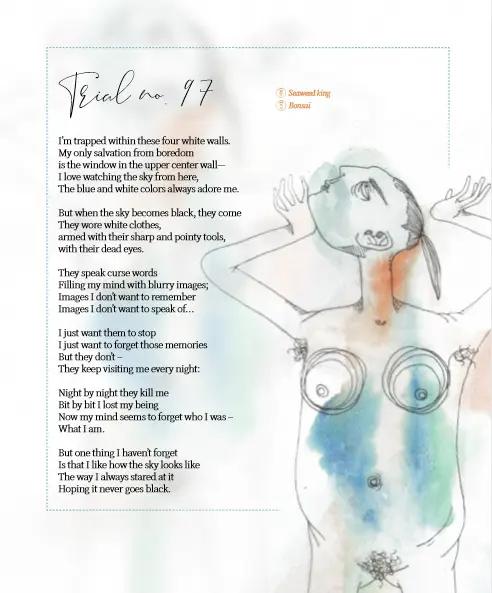 Trial no. 97
Seaweed king
Bonsai
I'm trapped within these four white walls.
My only salvation from boredom
is the window in the upper center wall—
I love watching the sky from here,
The blue and white colors always adore me.
But when the sky becomes black, they come
They wore white clothes,
armed with their sharp and pointy tools,
with their dead eyes.
They speak curse words
Filling my mind with blurry images;
Images I don't want to remember
Images I don't want to speak of…
I just want them to stop
I just want to forget those memories
But they don't –
They keep visiting me every night:
Night by night they kill me
Bit by bit I lost my being
Now my mind seems to forget who I was –
What I am.
But one thing I haven't forget
Is that I like how the sky looks like
The way I always stared at it
Hoping it never goes black.